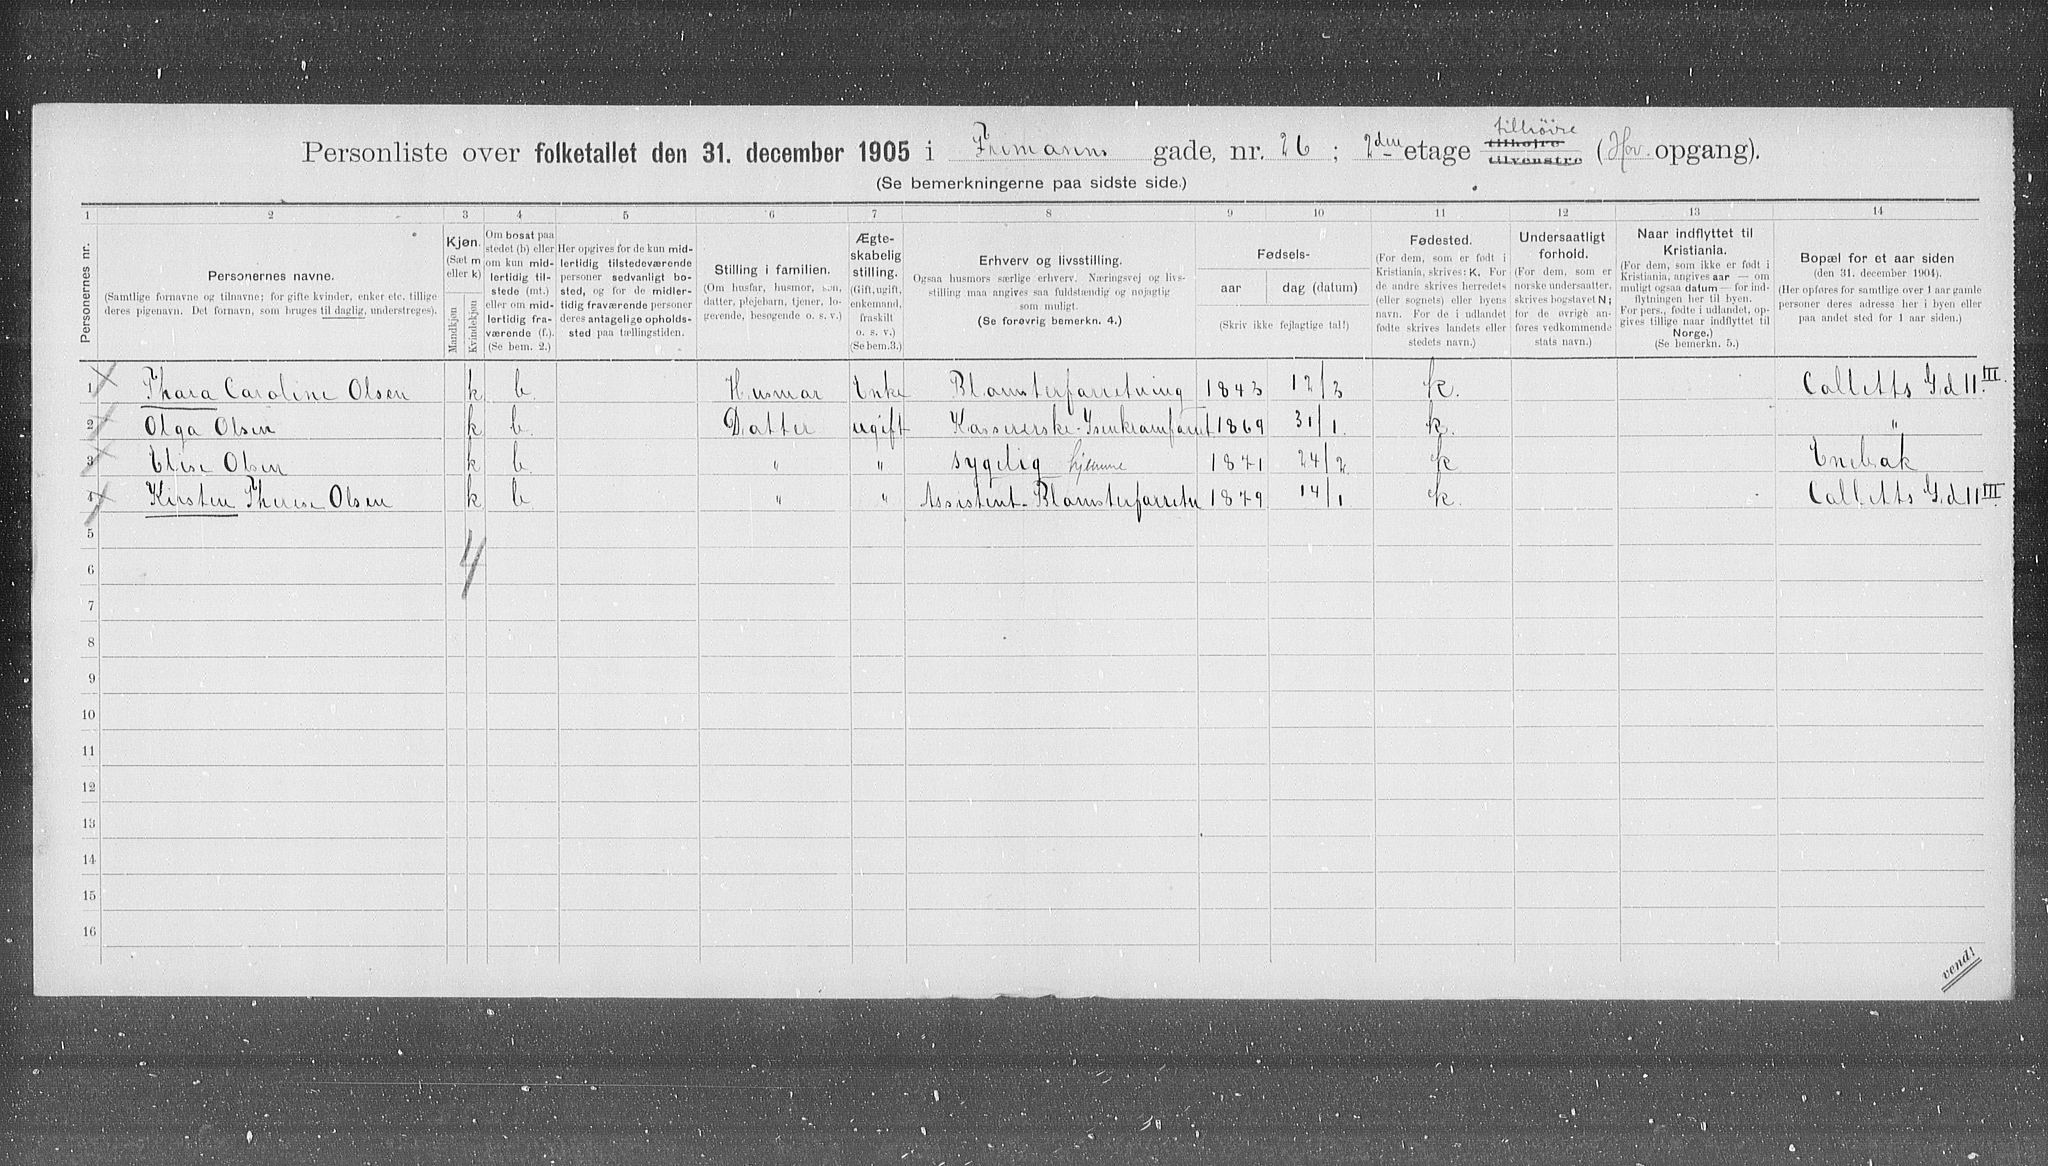 Personliste over folketallet den 31. december 1905 i Frimanns gade, nr. 26 ; 2den etage tilhøire tilhøjre tilvenstre (Hov. opgang).
(Se bemerkningerne paa sidste side.)
1 2 3 4 5 6 7 8 9 10 11 12 13 14
Personernes nr.
Personernes navne.
(Samtlige fornavne og tilnavne; for gifte kvinder, enker etc. tillige
deres pigenavn. Det fornavn, som bruges til daglig, understreges).
Kjøn.
(Sæt m
eller k)
Mandkjøn
Kvindekjøn
Om bosat paa
stedet (b) eller
om kun mid-
lertidig til-
stede (mt.)
eller om mid-
lertidig fra-
værende (f.).
(Se bem. 2.)
Her opgives for de kun mid-
lertidig tilstedeværende
personer sedvanligt bo-
sted, og for de midler-
tidig fraværende personer
deres antagelige opholds-
sted paa tællingstiden.
Stilling i familien.
(Om husfar, husmor, søn,
datter, plejebarn, tjener, lo-
gerende, besøgende o. s. v.)
Ægte-
skabelig
stilling.
(Gift, ugift,
enkemand,
fraskilt
o. s. v.)
(Se bem.3.)
Erhverv og livsstilling.
Ogsaa husmors særlige erhverv. Næringsvej og livs-
stilling maa angives saa fuldstændig og nøjagtig
som muligt.
(Se forøvrig bemerkn. 4.)
Fødsels-
aar dag (datum)
(Skriv ikke fejlagtige tal!)
Fødested.
(For dem, som er født i
Kristiania, skrives: K. For
de andre skrives herredets
(eller sognets) eller byens
navn. For de i udlandet
fødte skrives landets eller
stedets navn.)
Undersaatligt
forhold.
(For dem, som er
norske undersaatter,
skrives bogstavet N;
for de øvrige an-
føres vedkommende
stats navn.)
Naar indflyttet til
Kristiania.
(For dem, som ikke er født i
Kristiania, angives aar — om
muligt ogsaa datum — for ind-
flytningen her til byen.
For pers., fødte i udlandet, op-
gives tillige naar indflyttet til
Norge.)
(Se bemerkn. 5.)
Bopæl for et aar siden
(den 31. december 1904).
(Her opføres for samtlige over 1 aar gamle
personer deres adresse her i byen eller
paa andet sted for 1 aar siden.)
1 Thara Caroline Olsen k b. Husmor Enke Blomsterforretning 1843 12/3 k. Colletts Gd 11 III.
2 Olga Olsen k b. Datter ugift Kassererske-Isenkramforret 1869 31/1. k. "
3 Elise Olsen k b. " " sygelig hjemme 1871 24/2 k Enebak
4 Kirsten Therese Olsen k b " " Assistent-Blomsterforretn 1879 14/1 k. Colletts Gd 11 III.
5 4
6
7
8
9
10
11
12
13
14
15
16
vend!